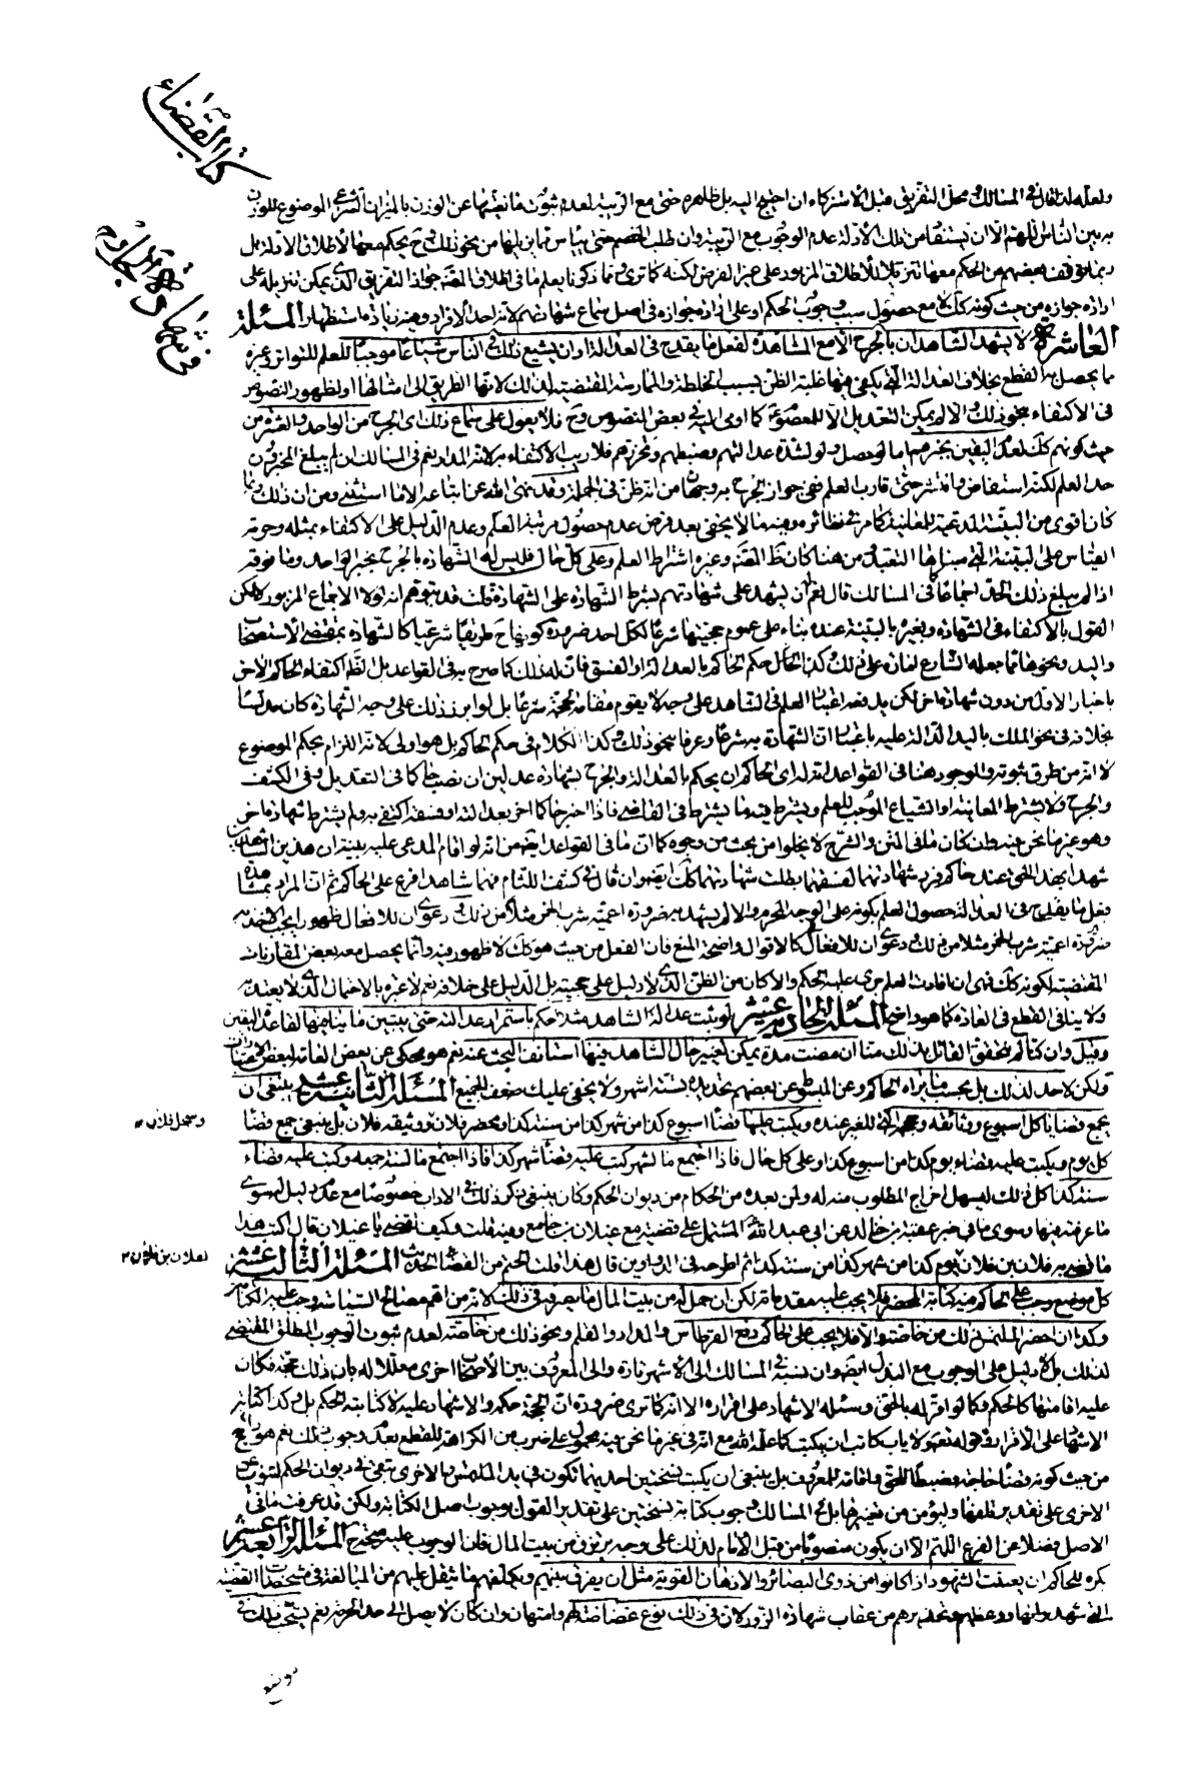 كتاب القضاء
في شهادة الجارح
ولعله لذا قال في المسالك ومحل التفريق قبل الاستزكاء ان احتيج اليه بل ظاهره حتى مع الريبة لعدم ثبوت مانعيتها عن الوزن بالميزان الشرعي الموضوع للوزن
به بين الناس اللهم الا ان يستفاد من تلك الادلة عدم الوجوب مع الريبة وان طلب الخصم حتى ييأس مما بنا بها من نحو ذلك وح يحكم معها لاطلاق الادلة بل
ربما توقف بعضهم من الحكم معها تنزيلا للاطلاق المزبور على غير الفرض لكنه كما ترى ومما ذكرنا يعلم ما في اطلاق المصنف جواز التفريق الذي يمكن تنزيله على
ارادة جوازه من حيث كونه كك لا مع حصول سبب وجوب الحكم او على ارادة جوازه في اصل سماع شهادتهم لانه احد الافراد ومنه زيادة استظهار المسئلة
العاشرة لا يشهد الشاهدان بالجرح الا مع المشاهدة لفعل ما يقدح في العدالة او ان يشيع ذلك في الناس شياعا موجبا للعلم للتواتر وغيره
مما يحصل به القطع بخلاف العدالة التي يكفي فيها غلبة الظن بسبب الخلطة والممارسة المقتضية لذلك لانها الطريق الى امثالها او لظهور النصوص
في الاكتفاء بنحو ذلك والا لم يمكن التعديل الا للمعصوم كما اومى اليه في بعض النصوص وح فلا يعول على سماع ذلك اي الجرح من الواحد والعشرة من
حيث كونهم كك لعدم اليقين بخبرهم اما لو حصل ولو لشدة عدالتهم وضبطهم وتحرزهم فلا ريب في الاكتفاء به لانه المدار نعم في المسالك ان لم يبلغ المخبرون
حد العلم لكنه استفاض وانتشر حتى قارب العلم ففي جواز الجرح به وجهان من انه ظن في الجملة وقد نهى الله عن اتباعه الا ما استثني ومن ان ذلك ربما
كان اقوى من البينة المدعية للمعاينة كما مر في نظائره وفيه ما لا يخفى بعد فرض عدم حصول مرتبة العلم وعدم الدليل على الاكتفاء بمثله وحرمة
القياس على البينة التي مبناها التعبد ومن هنا كان ظ المصنف وغيره اشتراط العلم وعلى كل حال فليس له الشهادة بالجرح بخبر الواحد وما فوقه
اذا لم يبلغ ذلك الحد اجماعا في المسالك قال نعم له ان يشهد على شهادتهم بشرط الشهادة على الشهادة قلت قد يتوهم انه لولا الاجماع المزبور لامكن
القول بالاكتفاء في الشهادة وبغيره بالبينة عنده بناء على عموم حجيتها شرعا لكل احد ضرورة كونها ح طريقا شرعيا كالشهادة بمقتضى الاستصحاب
واليد ونحوهما مما جعله الشارع امارة على ذلك وكذا الحال حكم الحاكم بالعدالة او الفسق فان له ذلك كما صرح به في القواعد بل الظ اكتفاء الحاكم الاخر
باخبار الاول من دون شهادة اخر لكن يدفعه اعتبار العلم في الشاهد على وجه لا يقوم مقامه حجة شرعا بل لو ابرز ذلك على وجه الشهادة كان مدلسا
بخلافه في نحو الملك باليد الدالة عليه باعتبار ان الشهادة به شرعا وعرفا بنحو ذلك وكذا الكلام في حكم الحاكم بل هو اولى لانه الزام بحكم الموضوع
لا انه من طرق ثبوته والموجود هنا في القواعد انه لو اراد الحاكم ان يحكم بالعدالة والجرح بشهادة عدلين ان نصب حاكما في التعديل وفي الكشف
والجرح ولا يشترط المعاينة او الشياع الموجب للعلم ويشترط فيه ما يشترط في القاضي فاذا اخبر حاكما اخر بعدالته او فسقه اكتفى به ولم يشترط شهادة اخر
وهو غير ما نحن فيه وان كان ما في المتن والشرح لا يخلو من بحث من وجوه كما ان ما في القواعد ايضا من انه لو اقام المدعى عليه بينة ان هذين الشاهدين
شهدا بهذا الحق عند حاكم فرد شهادتهما لفسقهما بطلت شهادتهما كك ايضا وان قال في كشف اللثام فهما شاهدا فرع على الحاكم ثم ان المراد بمشاهدة
فعل ما يقدح في العدالة حصول العلم بكونه على الوجه المحرم والا لم يشهد به ضرورة اعمية شرب الخمر مثلا من ذلك ودعوى ان للافعال ظهورا يجب الاخذ به
ضرورة اعمية شرب الخمر مثلا من ذلك ودعوى ان للافعال كالاقوال واضحة المنع فان الفعل من حيث هو كك لا ظهور فيه وانما يحصل معه بعض المقارنات
المقتضية لكونه كك فهي ان افادت العلم جرى عليه الحكم والا كان من الظن الذي لا دليل على حجيته بل الدليل على خلافه نعم لا عبرة بالاحتمال الذي لا يعتد به
ولا ينافي القطع في العادة كما هو واضح المسئلة الحادية عشر لو ثبت عدالة الشاهد مثلا حكم باستمرار عدالته حتى يتبين ما ينافيها لقاعدة اليقين
وقيل وان كنا لم نتحقق القائل بذلك منا ان مضت مدة يمكن تغيير حال الشاهد فيها استأنف البحث عنه نعم هو محكي عن بعض العامة لبعض الاعتبارات
ولكن لا حد لذلك بل بحسب ما يراه الحاكم وعن المبسوط عن بعضهم تحديده بستة اشهر ولا يخفى عليك ضعف الجميع المسئلة الثانية عشر ينبغي ان
يجمع قضايا كل اسبوع ووثائقه وحججه التي للغير عنده ويكتب عليها قضاء اسبوع كذا من شهر كذا من سنة كذا ومحضر فلان ووثيقة فلان بل ينبغي جمع قضاء
وسجل فلان
كل يوم ويكتب عليه قضاء يوم كذا من اسبوع كذا وعلى كل حال فاذا اجتمع ما لشهر كتب عليه قضاء شهر كذا فاذا اجتمع ما لسنة جمعه وكتب عليه قضاء
سنة كذا كل ذلك ليسهل اخراج المطلوب منه له ولمن بعده من الحكام من ديوان الحكم وكان ينبغي ذكر ذلك في الاداب خصوصا مع عدم دليل له سوى
ما عرفته فيها وسوى ما في خبر عقبة بن خالد عن ابي عبد الله المشتمل على قضية مع غيلان بن جامع وفيه قلت وكيف تقضي يا غيلان قال اكتب هذا
ما قضى به فلان بن فلان يوم كذا من شهر كذا من سنة كذا ثم اطرحه في الدواوين قال هذا قلت الحتم من القضاء الحديث المسئلة الثالثة عشر
لفلان بن فلان
كل موضع وجب على الحاكم فيه كتابة المحضر فلا يجب عليه مقدماته لكن ان حمل له من بيت المال ما يصرفه في ذلك لانه من اهم مصالح المسلمين وجب عليه الكتابة
وكذا ان احضر الملتمس ذلك من خاصته والا فلا يجب على الحاكم دفع القرطاس والمداد والقلم ونحو ذلك من خاصته لعدم ثبوت الوجوب المطلق المقتضي
لذلك بل لا دليل على الوجوب مع البذل ايضا وان نسبه في المسالك الى الاشهر تارة والى المعروف بين الاصحاب اخرى معللا له بان ذلك حجة فكان
عليه اقامتها كالحكم وكما لو اقر له بالحق وسئله الاشهاد على اقراره الا انه كما ترى ضرورة ان الحجة حكمه والاشهاد عليه لا كتابته الحكم بل وكذا كتابة
الاشهاد على الاقرار بقوله تعالى ولا ياب كاتب ان يكتب كما علمه الله مع انه في غير ما نحن فيه محمول على ضرب من الكراهة للقطع بعدم وجوب ذلك نعم هو راجح
من حيث كونه قضاء حاجة وضبطا للحق واقامة للمعروف بل ينبغي ان يكتب نسختين احديهما تكون في يد الملتمس والاخرى تبقى في ديوان الحكم لتنوب عن
الاخرى على تقدير تلفها وليؤمن من تغييرها بل في المسالك وجوب كتابة نسختين على تقدير القول بوجوب اصل الكتابة ولكن قد عرفت ما في
الاصل فضلا عن الفرع اللهم الا ان يكون منصوبا من قبل الامام لذلك على وجه يرتزق من بيت المال فان الوجوب عليه متجه ح المسئلة الرابعة عشر
يكره للحاكم ان يعنت الشهود اذا كانوا من ذوي البصائر والاذهان القوية مثل ان يفرق بينهم ويكلفهم ما يثقل عليهم من المبالغة في مشخصات القضية
التي شهدوا بها ووعظهم وتحذيرهم من عقاب شهادة الزور لان في ذلك نوع غضاضة لهم وامتهان وان كان لا يصل الى حد الحرمة نعم يستحب ذلك في
موضع